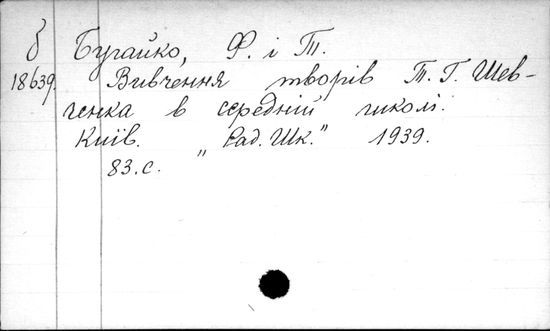 б Бугайко, Ф. і Т.
18639 Вивчення творів Т. Г. Шев-
ченка в середній школі.
Київ. "Рад. Шк." 1939.
83.с.